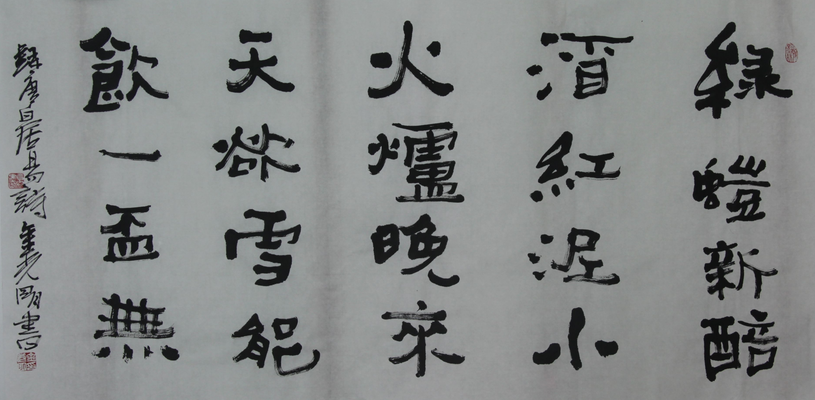 綠螘新醅
酒紅泥小
火爐晚來
天欲雪能
飲一盃無
唐白居易詩